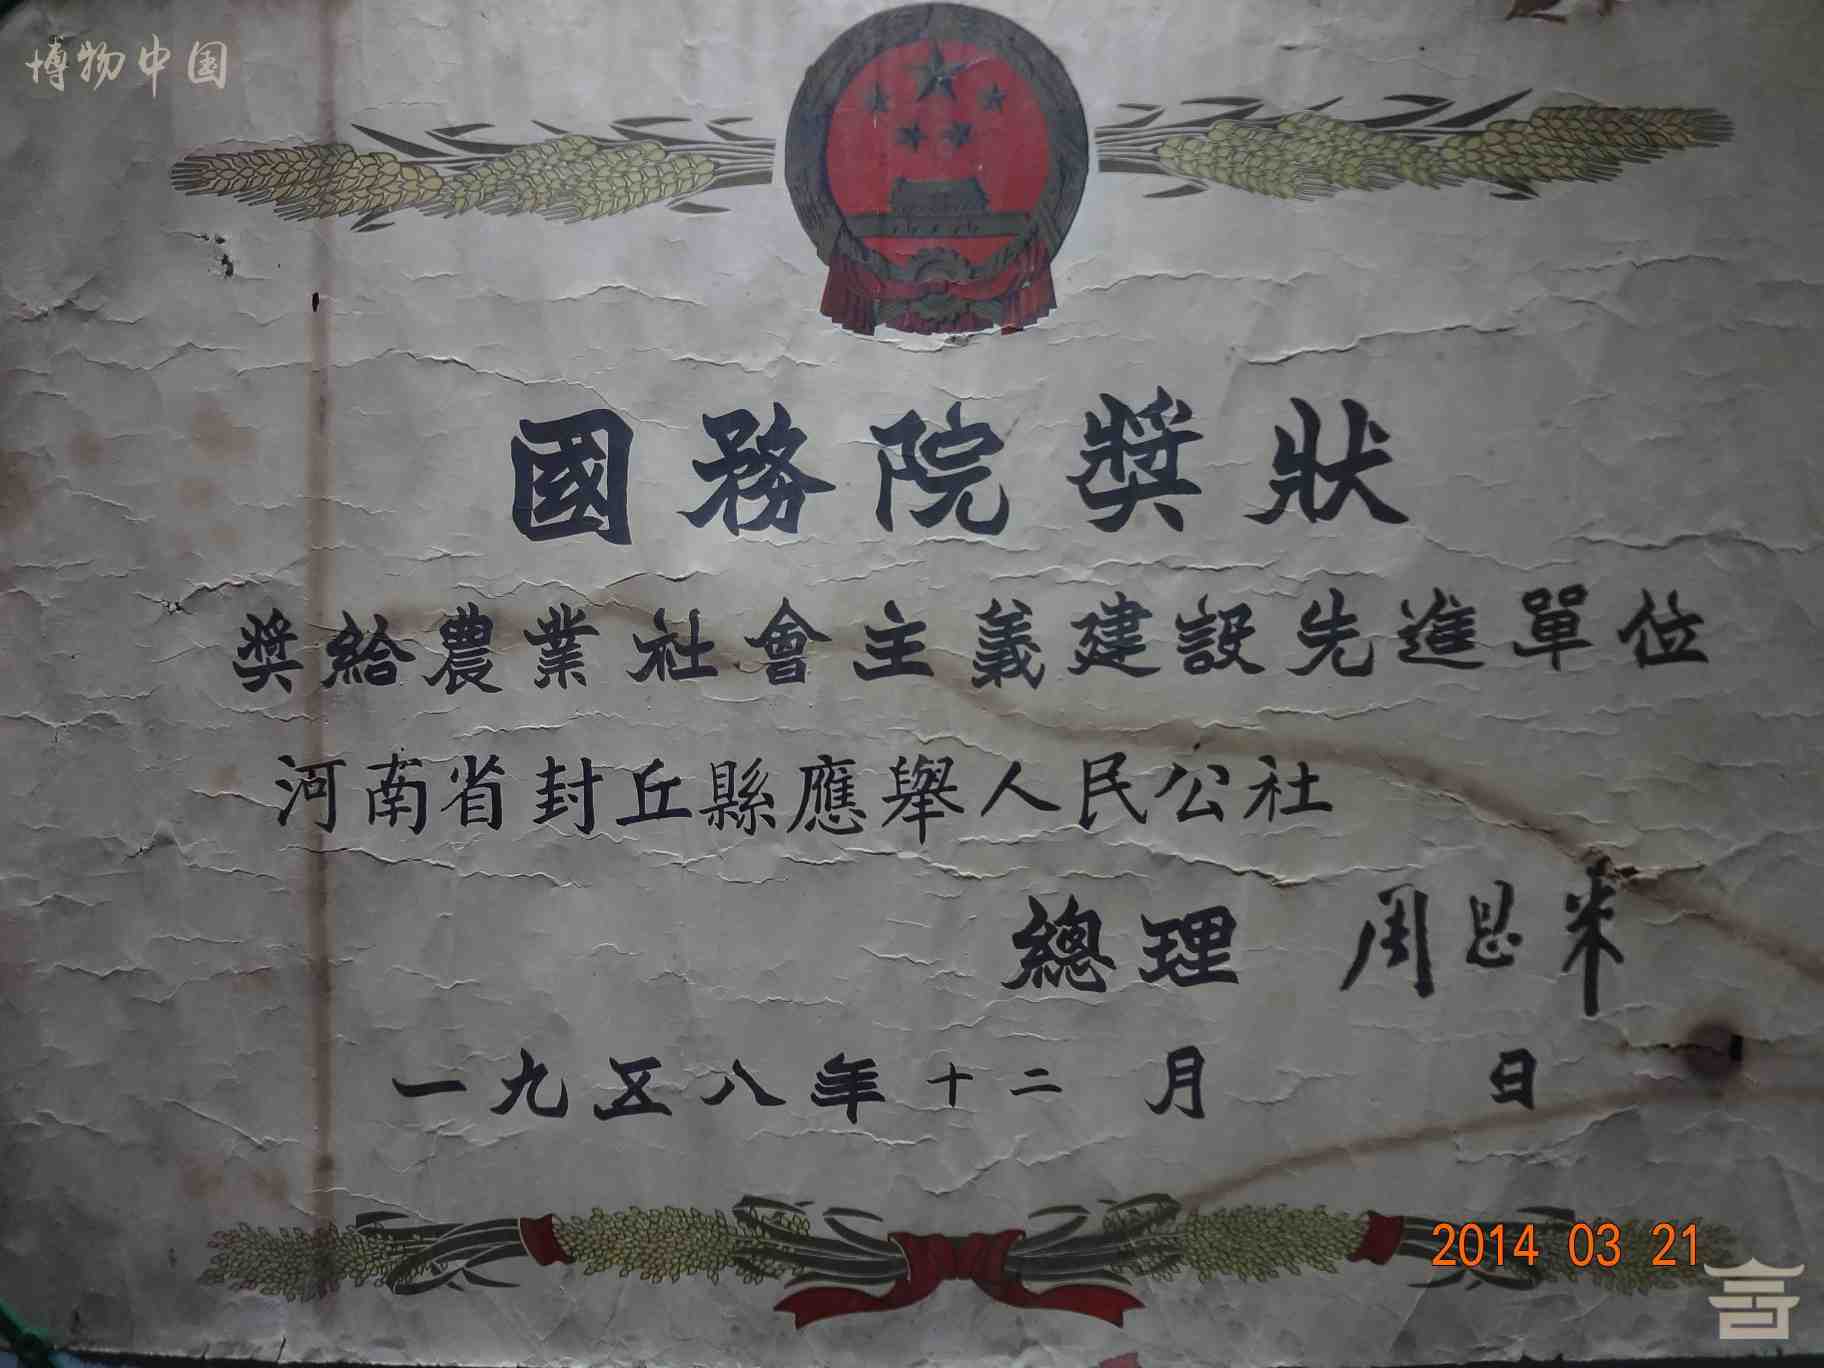 博物中国
國務院獎狀
獎給農業社會主義建設先進單位
河南省封丘縣應舉人民公社
總理 周恩來
一九五八年十二月 日
2014 03 21